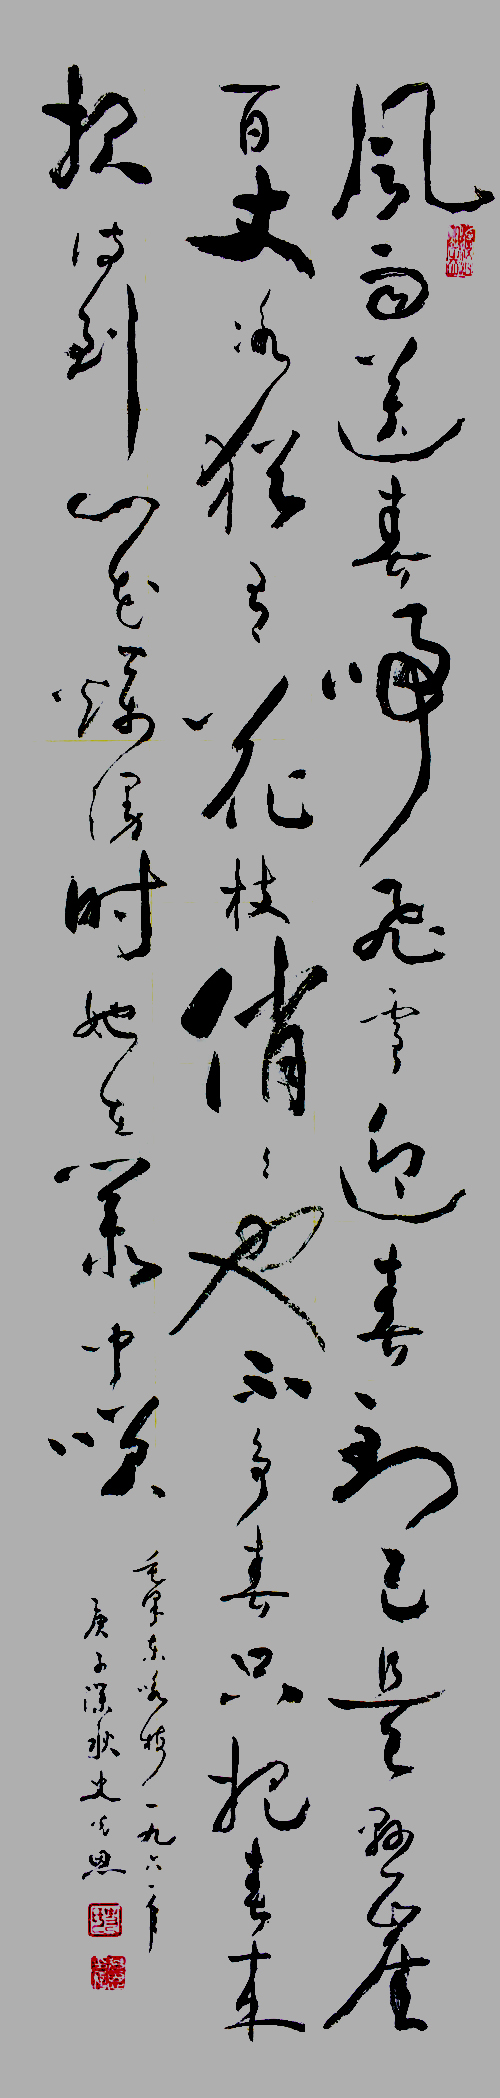 風雨送春歸飛雪迎春到已是懸崖
百丈冰猶有花枝俏々也不爭春只把春來
報待到山花爛漫时她在叢中咲
毛澤東咏梅一九六一年
庚子深秋史